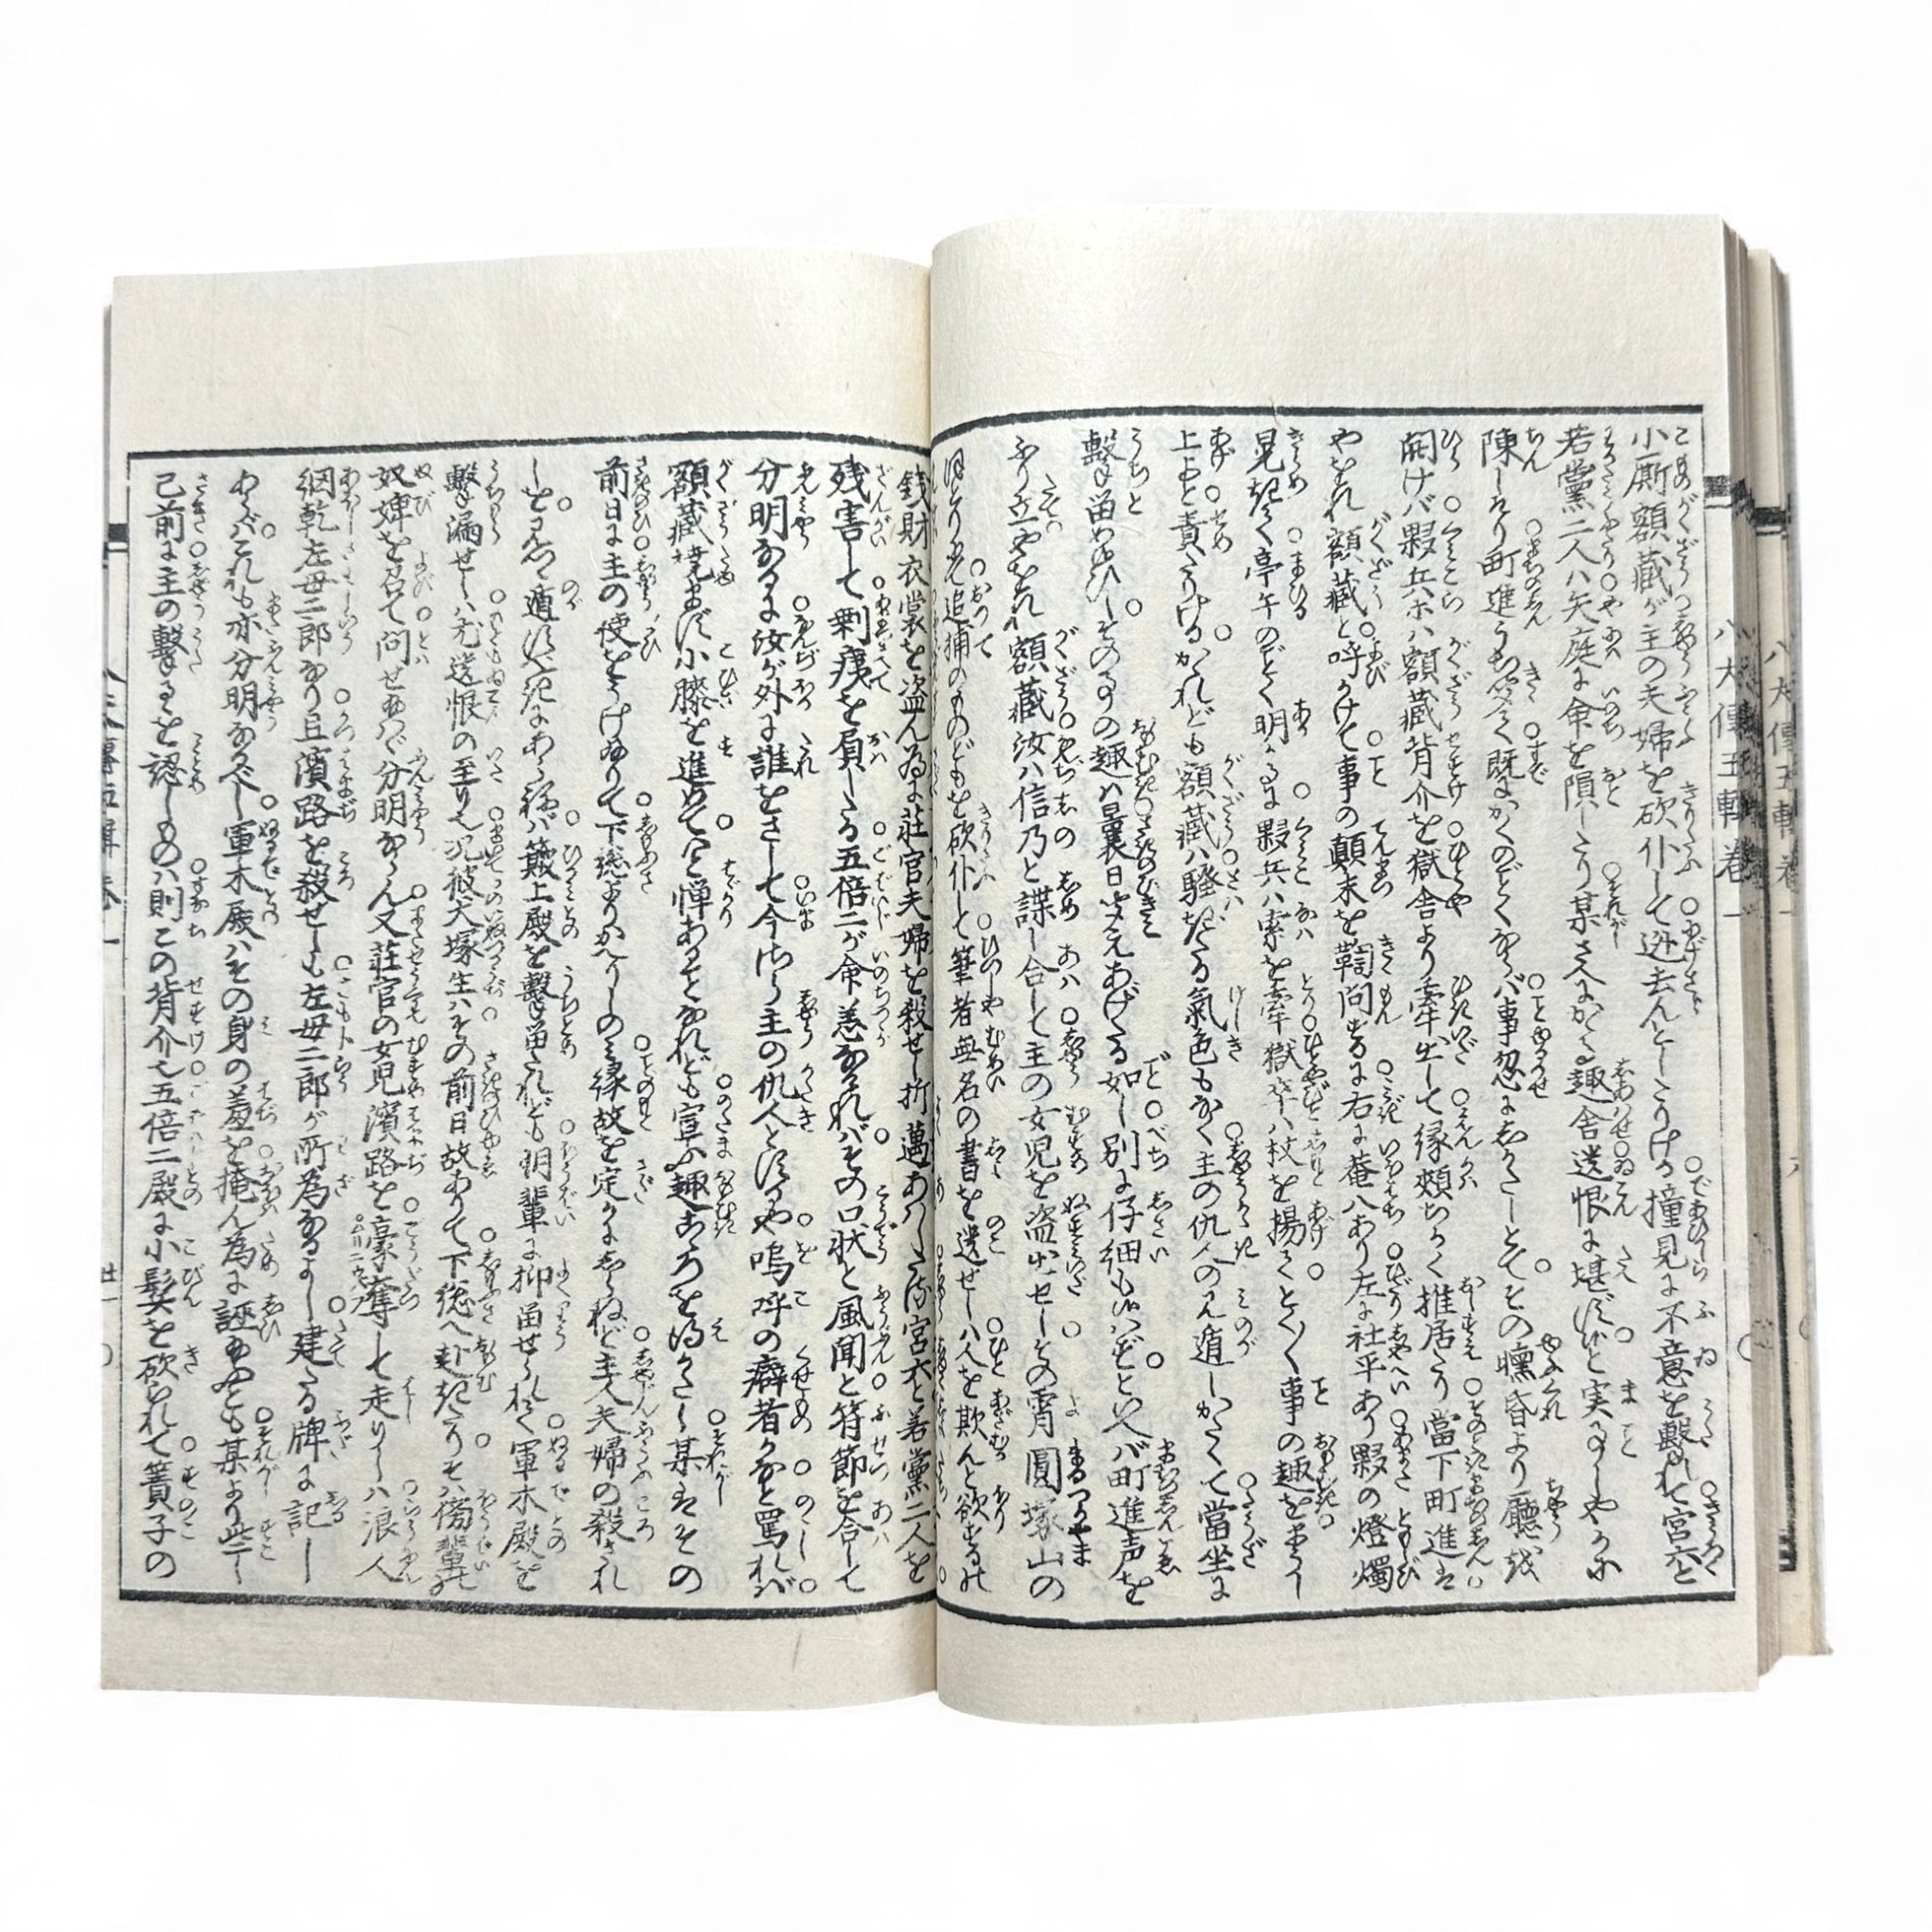 小廝額藏が主の夫婦を砍仆して迯去んとしたりける撞見に不意を撃れて宮六と
若黨二人ハ矢庭に命を隕したり某さへにかゝる趣舎遺恨に堪ずと実事しやかに
陳しけり町進うち笑て既にかくのごとくならバ事忽にしがたしとてその曛昏より廳
開けバ夥兵ホハ額藏背介を獄舎より牽出して縁頬ちかく推居たり當下町進ハ
やをれ額藏と呼かけて事の顛末を鞫問するに右に菴八あり左に社平あり夥の燈燭
晃きて亭午のごとく明なるに夥兵ハ索を牽獄卒ハ杖を揚てとく〳〵事の趣をまうし
上よと責たりけるかゝれども額藏ハ騒だる氣色もなく主の仇人のん遁しがたくて當坐に
撃畄め候ひしその事の趣ハ曩日聞えあげたる如し別に仔細も候ハずといへバ町進声を
ふり立やをれ額藏汝ハ信乃と謀し合して主の女児を盗出せしその宵圓塚山の
ほとりにて追捕のものどもを砍仆しと筆者無名の書を遺せし八人を欺んと欲するのミ
銭財衣裳を盗ん為に莊官夫婦を殺せし折遇あハしたる宮六と若黨二人を
残害して剰痍を負したる五倍二が命恙なけれバその口状と風聞と符節を合して
分明なるに汝が外に誰をさして今さら主の仇人と
額藏噪まず小膝を進めて
前日に主の使をうけ給りて下総よりかへりしのミ縁故を定かにしらねど主人夫婦の殺され
しを見て遁すべきにあらねバ簸上殿を撃畄たれども朋輩に抑畄せられて軍木殿を
撃漏せしハ尤遺恨の至り也況彼犬塚生ハその前日故ありて下総へ赴きたりそハ傍輩の
奴婢を召て問せ給ハゞ分明ならん又莊官の女児濱路を豪奪して走りしハ浪人
網乾左母二郎なり且濱路を殺せしも左母二郎が所為なるよし建たる牌に記し
あれバこれも亦分明なるべし軍木殿ハその身の羞を掩ん為に誣給ふとも某より些し
己前に主の撃るゝを認しものハ則この背介也五倍二殿に小鬢を砍られて簀子の
八犬傳五輯卷一